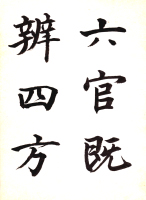 六官既
辨四方